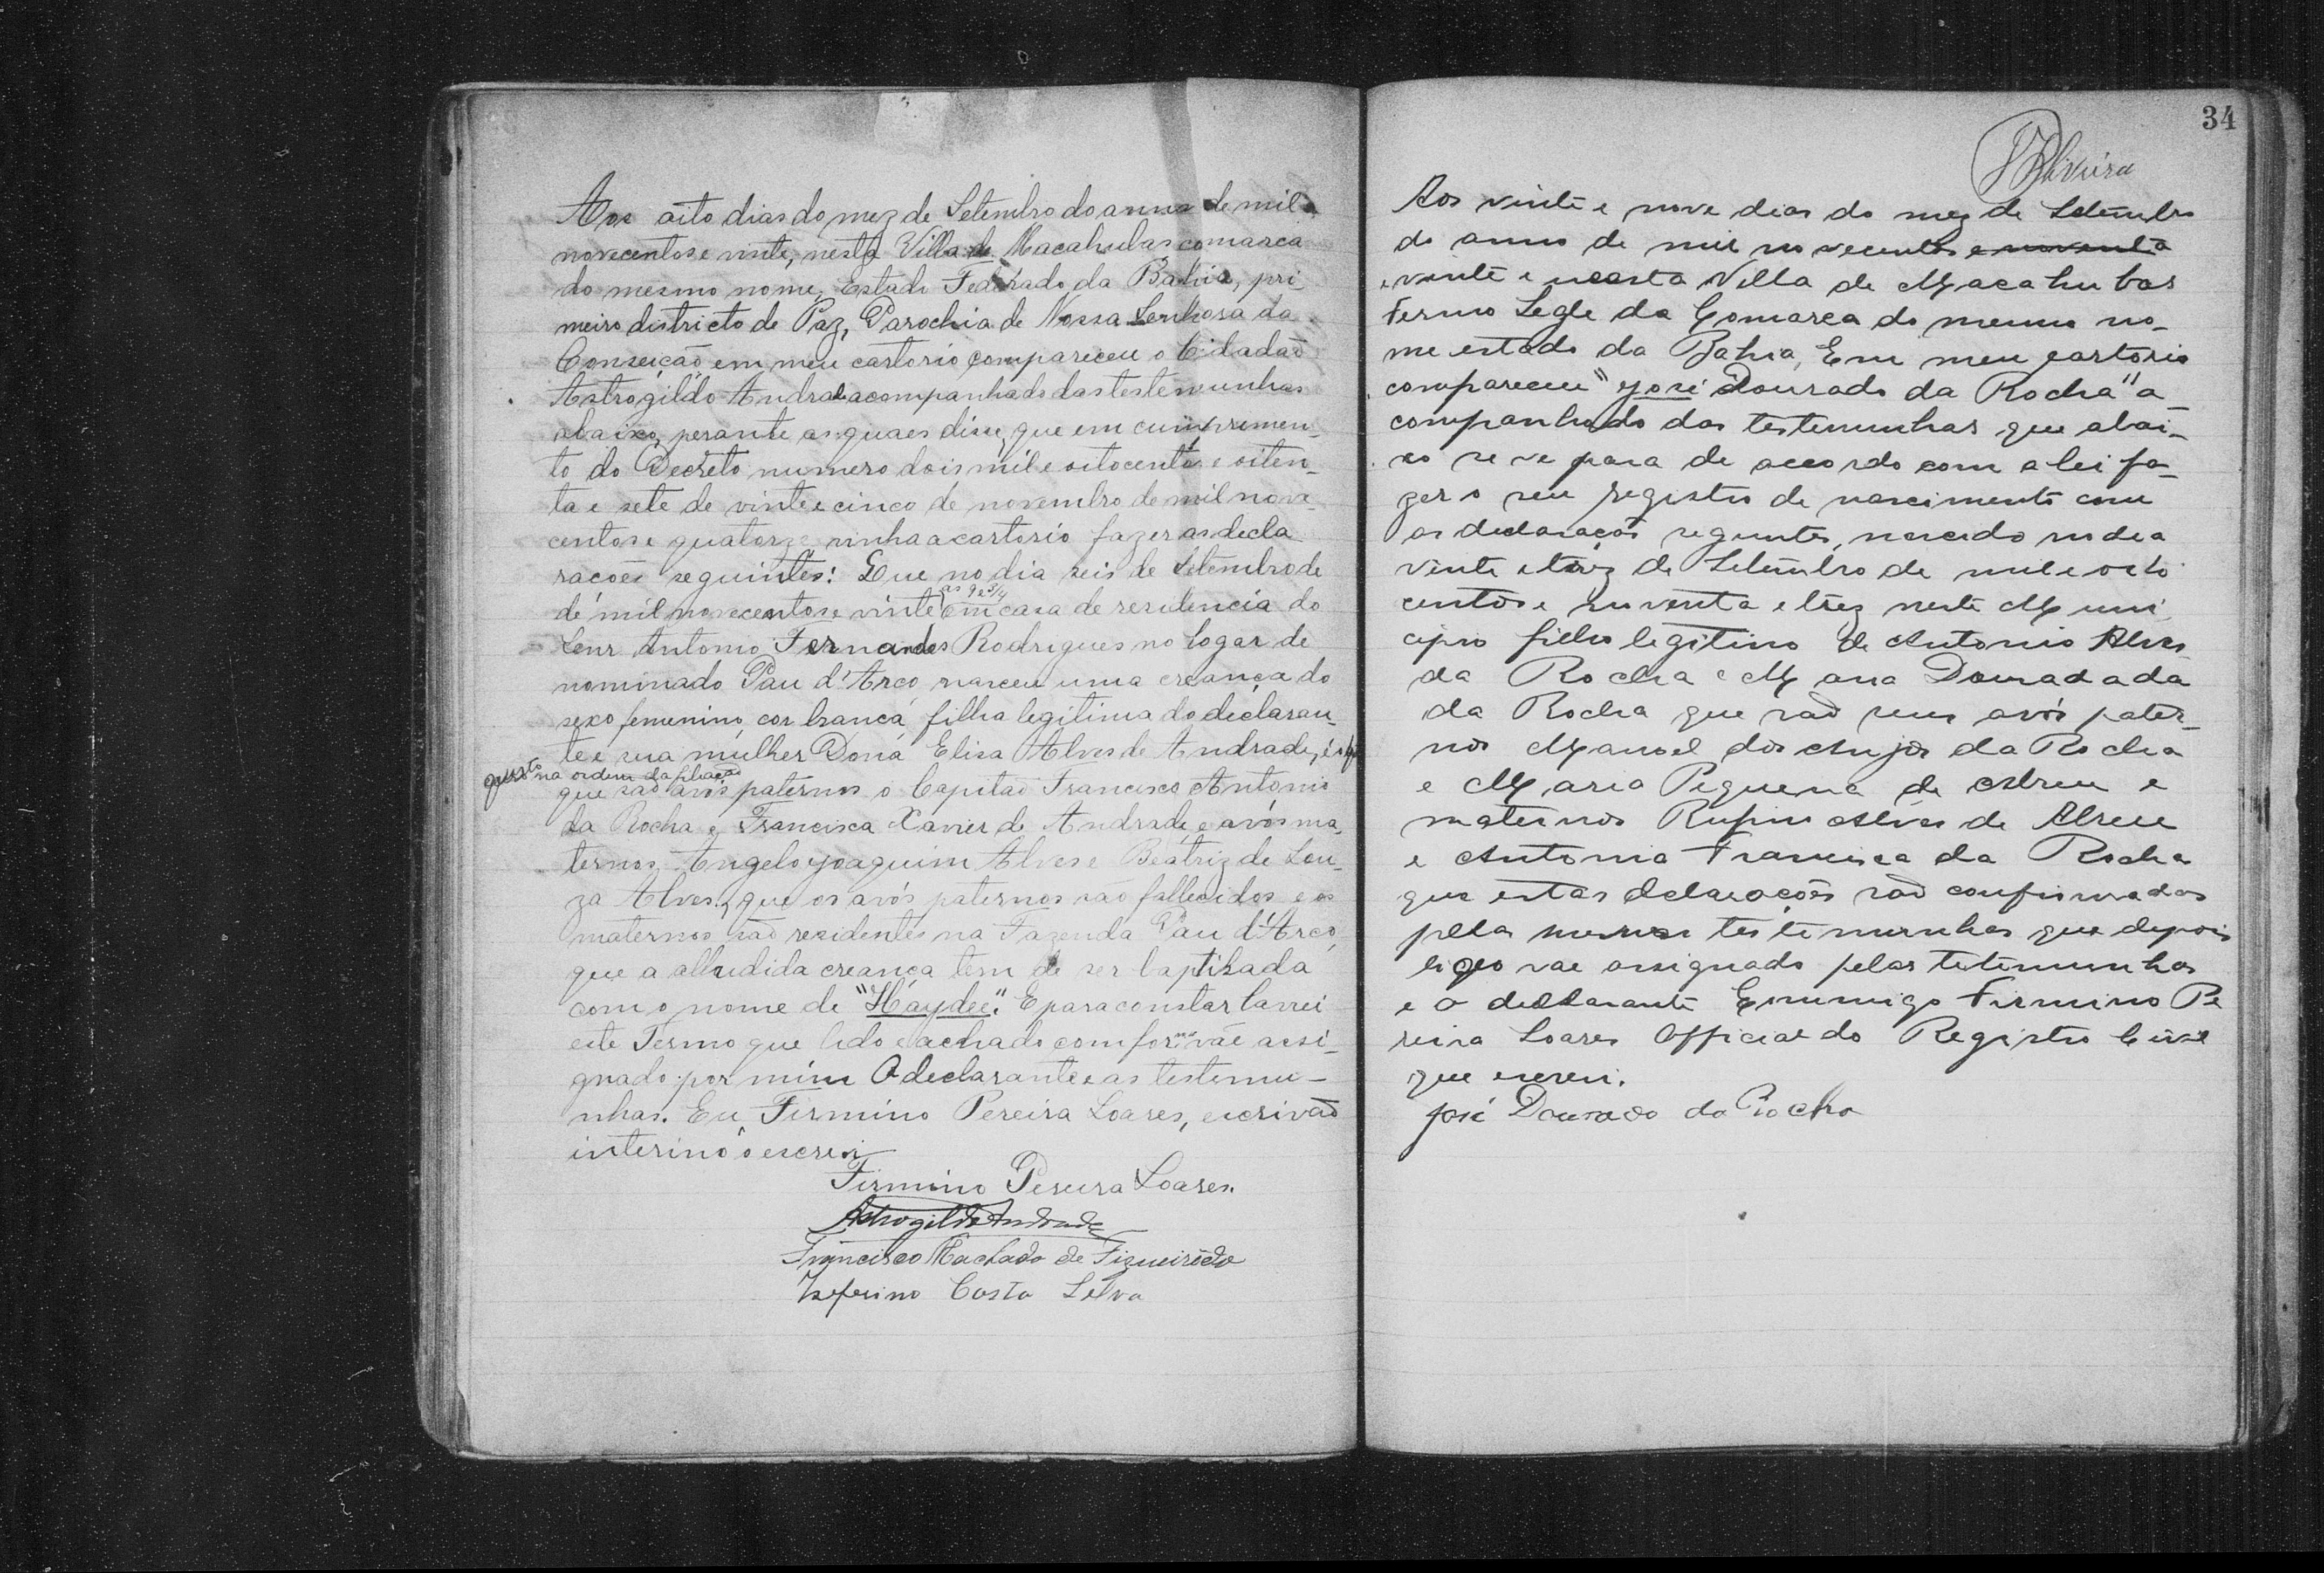 Aos oito dias do mez de Setembro do anno de mil
novecentos e vinte, nesta Villa de Macahubas comarca
do mesmo nome, Estado Federado da Bahia, pri_
meiro districto de Paz, Parochia de Nossa Senhora da
Conseição em meu cartorio compareceu o Cidadão
Astrogildo Andrade acompanhado das testemunhas
abaixo, perante as quaes disse, que em cumpremen_
to do Decreto numero dois mil e oitocentos e oiten_
ta e sete de vinte e cinco de novembro de mil nove_
centos e quatorze vinha a cartorio fazer as decla
racões seguintes: Que no dia seis de Setembro de
de mil novecentos e vinte as 9 e 3/4 em casa de residencia do
Senr Antonio Fernandes Rodrigues no logar de
nominado Pau d'Arco nasceu uma creança do
sexo femenino, cor branca filha legitima do declaran_
te e sua mulher Dona Elisa Alves de Andrade, é a
quarto na ordem da filiação
que são avós paternos o Capitão Francisco Antonio
da Rocha e Francisca Xavier de Andrade e avós ma_
ternos, Angelo Joaquim Alves e Beatriz de Sou_
za Alves, que os avós paternos são fallecidos e os
maternos são residentes na Fazenda Pau d'Arco,
que a alludida creança tem de ser baptisada
com o nome de "Haydée". E para constar lavrei
este Termo que lido e achado conforme vae assi_
gnado por mim O declarante e as testemu_
nhas. Eu Firmino Pereira Soares, escrivão
interino o escrevi
Firmino Pereira Soares.
Astrogildo Andrade
Francisco Machado de Figueirêdo
Zeferino Costa Silva
34
Oliveira
Aos vinte e nove dias do mez de Setembro
do anno de mil novecentos e noventa
e vinte e nesta Villa de Macahubas
Termo Segle da Comarca do mesmo no_
me estado da Bahia, Em meu cartorio
compareceu "José Dourado da Rocha" a
companhado das testemunhas que abai_
xo se ve para de accordo com a lei fa_
zer o seu registro de nascimento com
as declaraçoes seguintes, nascido no dia
vinte e trez de Setembro de mil e oito
centos e noventa e trez neste Muni
cipio filho legitimo de Antonio Alves
da Rocha e Maria Dourada da
da Rocha que são seus avós pater_
nos Manoel dos Anjos da Rocha
e Maria Pequena de Abreu e
maternos Rufino Alves de Abreu
e Antonia Francisca da Rocha
que estas declaracoes são confirmadas
pelas mesmas testemunhas que depois
vae assignado pelas testemunhas
e o declarante Commigo Firmino Pe
reira Soares Official do Registro Civil
que escrevi.
José Dourado da Rocha